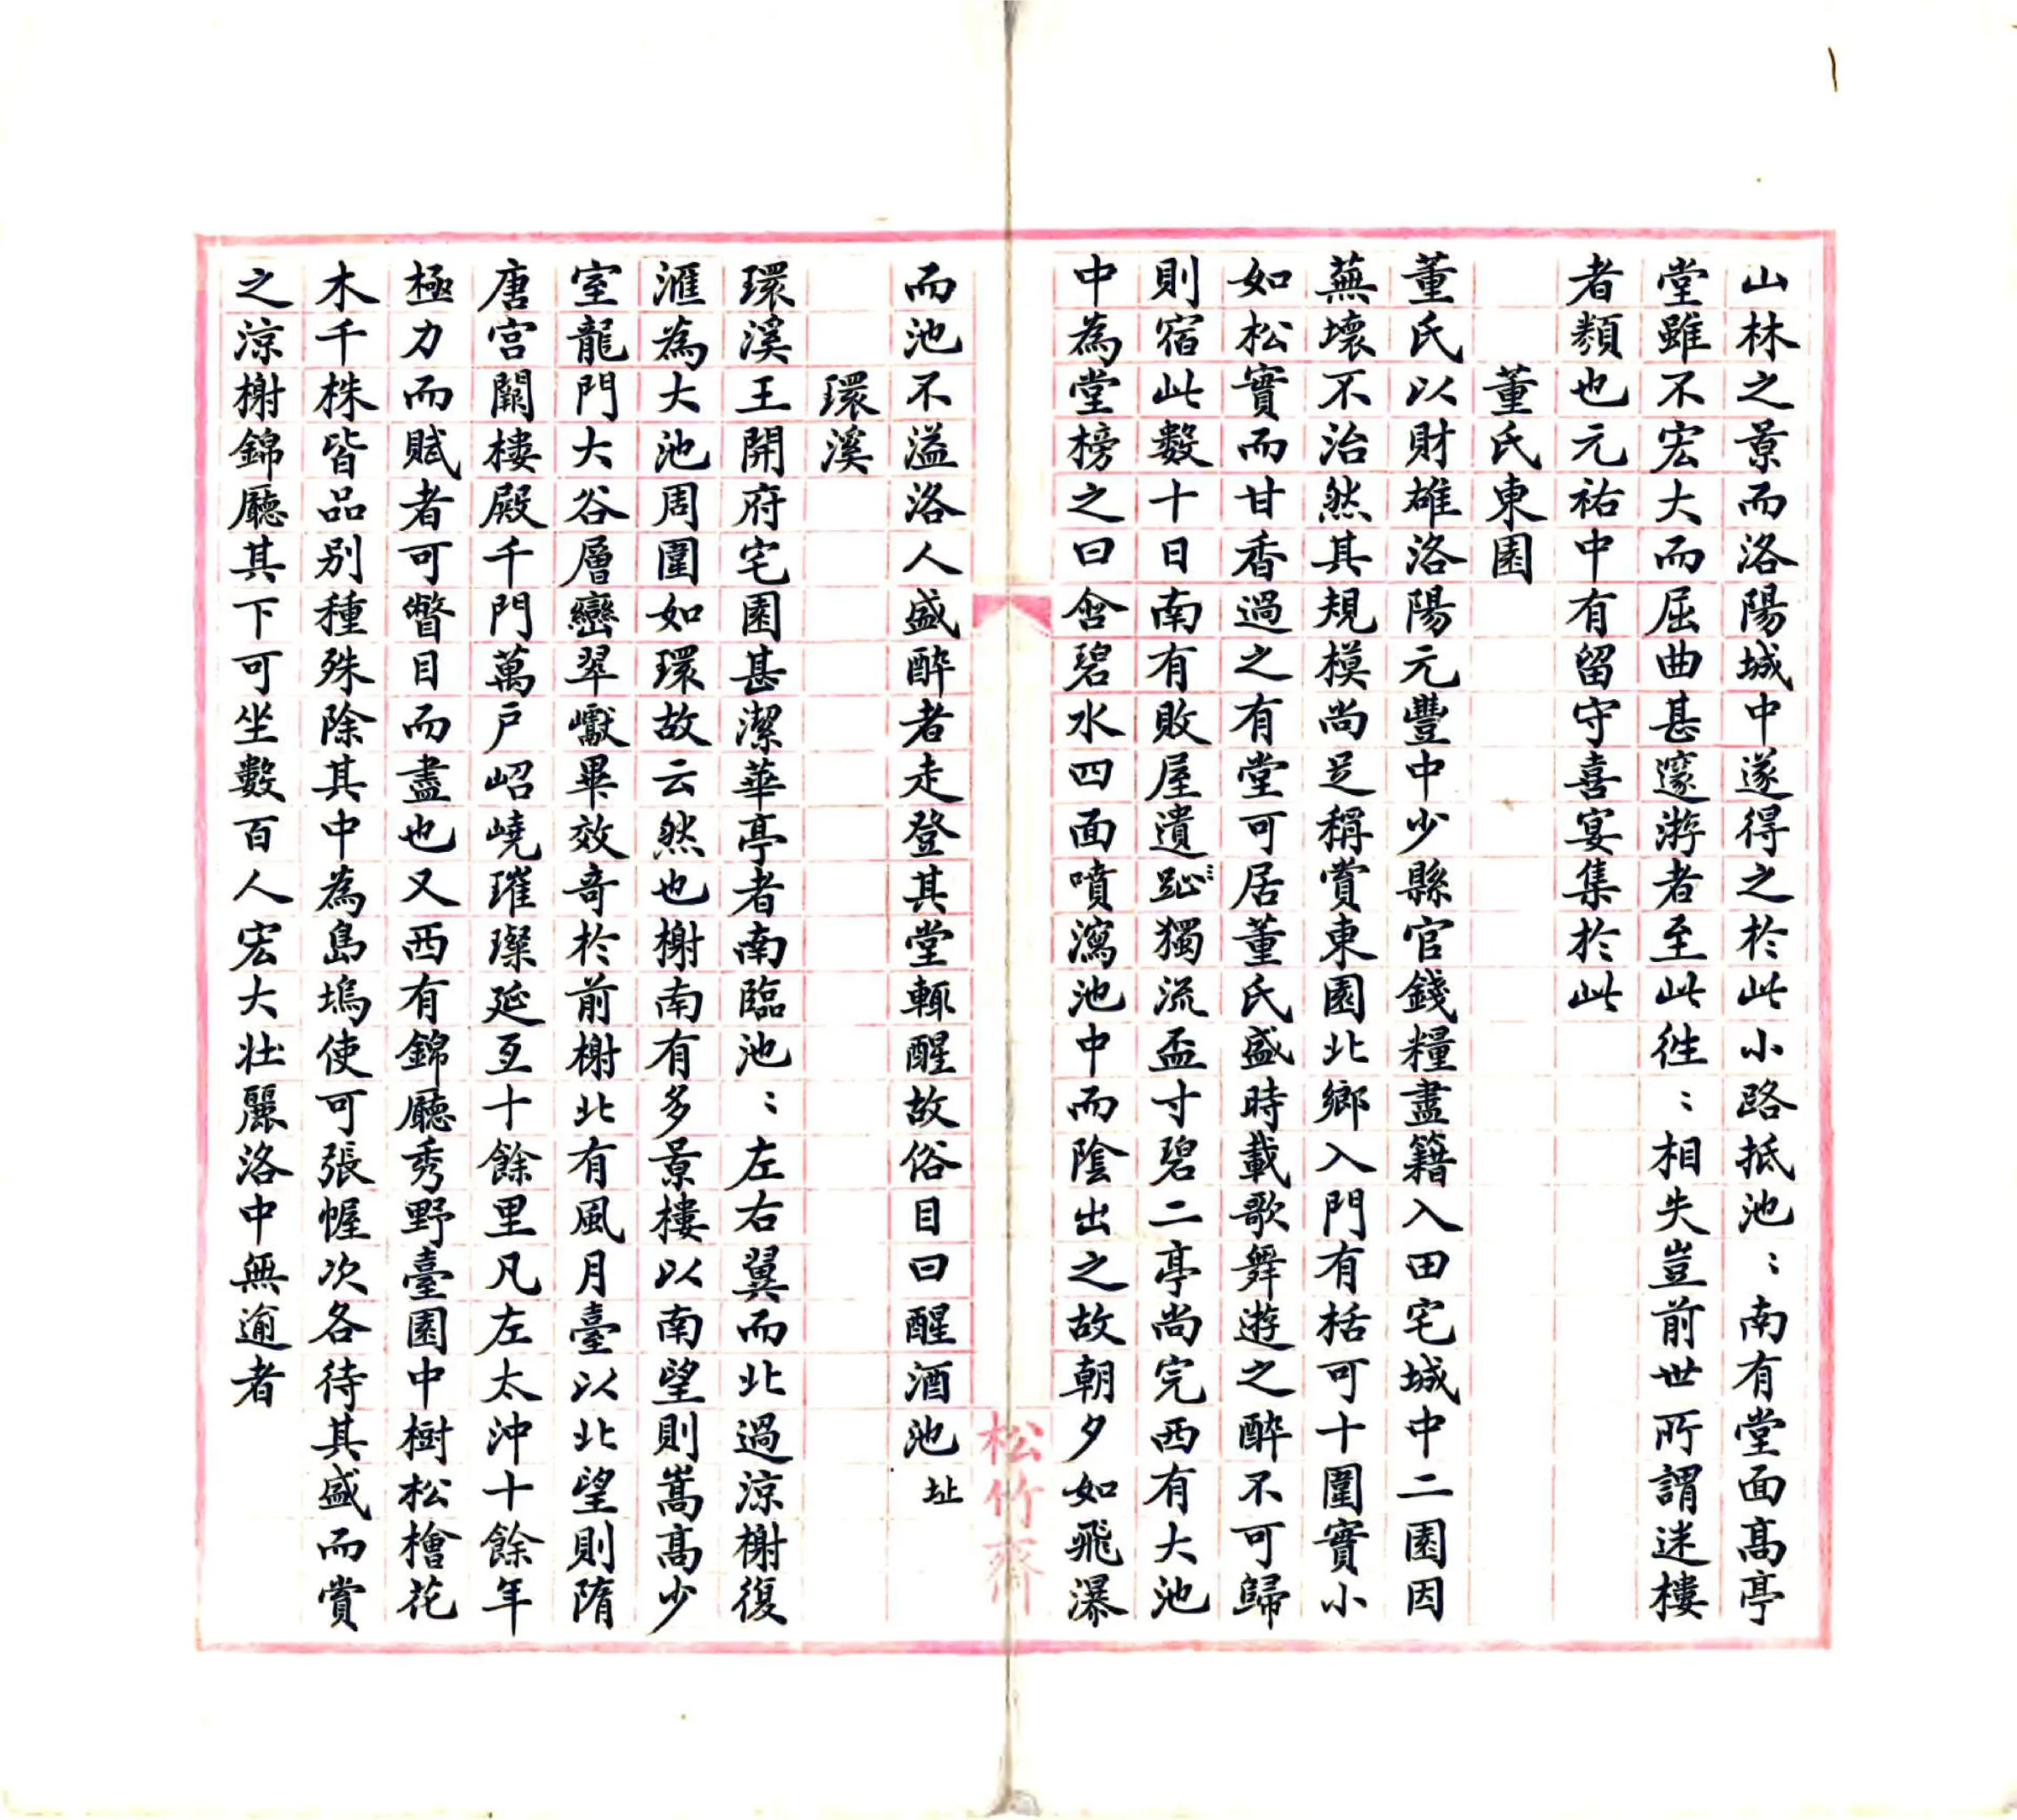 山林之景而洛陽城中遂得之於此小路抵池〻南有堂面高亭
堂雖不宏大而屈曲甚邃游者至此徃〻相失豈前世所謂迷樓
者類也元祐中有留守喜宴集於此
董氏東園
董氏以財雄洛陽元豐中少縣官錢糧盡籍入田宅城中二園因
蕪壞不治然其規模尚足稱賞東園北鄉入門有栝可十圍實小
如松實而甘香過之有堂可居董氏盛時載歌舞遊之醉不可歸
則宿此數十日南有敗屋遺趾獨流盃寸碧二亭尚完西有大池
中為堂榜之曰含碧水四面噴瀉池中而陰出之故朝夕如飛瀑
而池不溢洛人盛醉者走登其堂輒醒故俗目曰醒酒池 址
環溪
環溪王開府宅園甚潔華亭者南臨池〻左右翼而北過涼榭復
滙為大池周圍如環故云然也榭南有多景樓以南望則嵩高少
室龍門大谷層巒翠巘畢效奇於前榭北有風月臺以北望則隋
唐宮闕樓殿千門萬戶岧嶢璀璨延亙十餘里凡左太沖十餘年
極力而賦者可瞥目而盡也又西有錦廳秀野臺園中樹松檜花
木千株皆品別種殊除其中為島塢使可張幄次各待其盛而賞
之涼榭錦廳其下可坐數百人宏大壯麗洛中無逾者
松竹齋